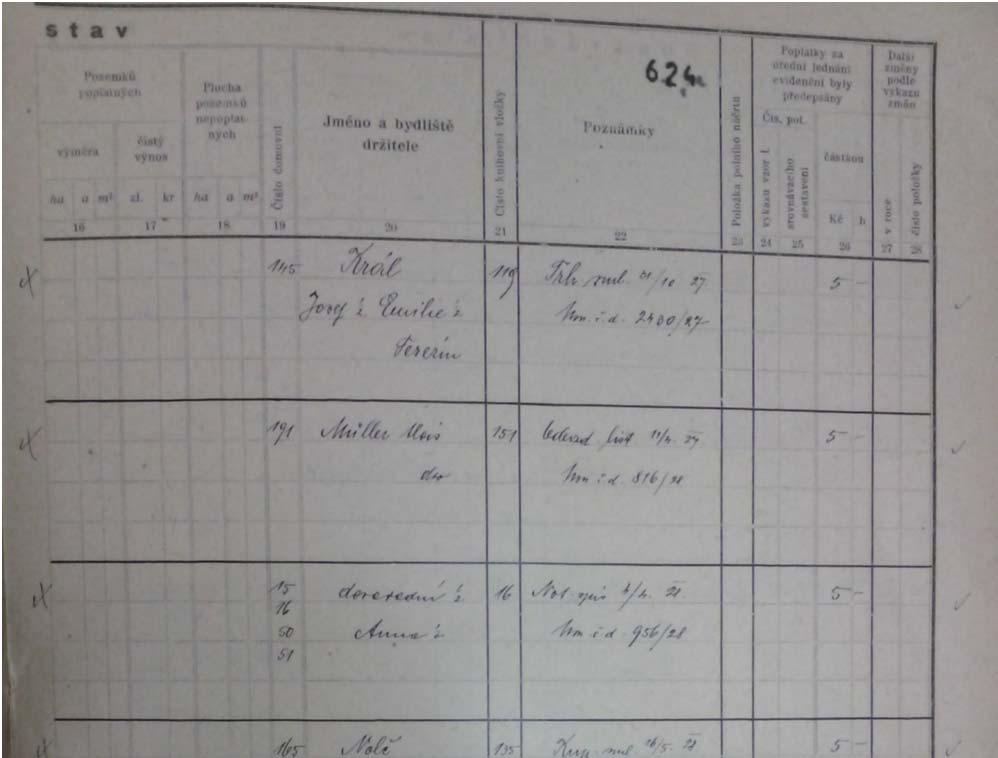 stav
Pozemků poplatných
Plocha pozemků nepoplatných
výměra
čistý výnos
ha a m²
zl. kr
ha a m²
Číslo domovní
Jméno a bydliště držitele
Číslo knihovní vložky
624
Poznámky
Položka polního náčrtu
Poplatky za úřední jednání evidenční byly předepsány
Čís. pol.
výkazu vzor I.
srovnávacího sestavení
částkou
Kč h
Další změny podle výkazu změn
v roce
číslo položky
16 17 18 19 20 21 22 23 24 25 26 27 28
145 Král 119 Trh. sml. 31/10 27. 5 -
Josef ½ Emilie ½
Terezín
č. d. 2430/27
191 Müller Alois 151 list 27 5 -
dto
č. d. 816/28
15 ½ 16 28. 5 -
16
50 Anna ½ č. d. 956/28
51
165 135 sml. 16/5. 28 5 -